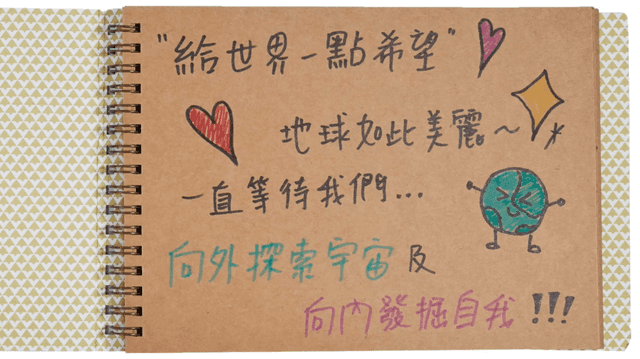 "給世界一點希望"
地球如此美麗～
一直等待我們...
向外探索宇宙及
向內發掘自我!!!